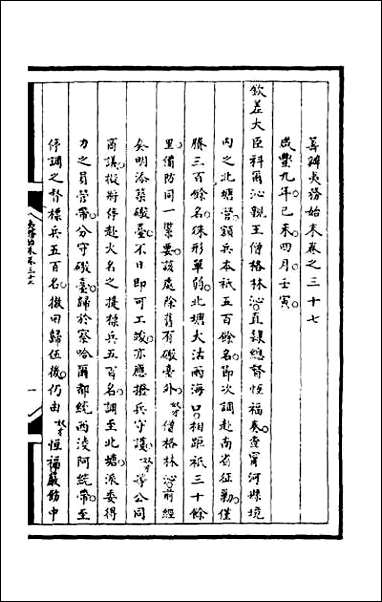 籌辦夷務始末卷之三十七
咸豐九年己未四月壬寅
欽差大臣科爾沁親王僧格林沁直隸總督恆福奏查甯河縣境
內之北塘營額兵本祇五百餘名節次調赴南省征勦僅
賸三百餘名殊形單弱北塘大沽兩海口相距祇三十餘
里備防同一緊要該處除舊有礮臺外奴才僧格林沁前經
奏明添築礮臺不日即可工竣亦應撥兵守護奴才等公同
商議擬將停赴火名之提標兵五百名調至北塘派委得
力之員管帶分守礮臺歸於察哈爾都統西淩阿統帶至
停調之督標兵五百名撤回歸伍後仍由奴才恆福嚴飭中
夷務始末卷三十七
一